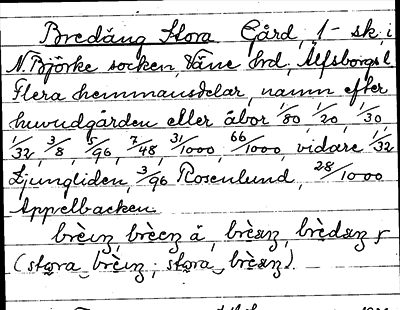 Bredäng Stora Gård, 1 - sk, i
N. Björke socken, Väne hrd, Älfsborgs l
Flera hemmansdelar, namn efter
huvudgården eller åbor 1/80, 1/20, 1/30
1/32, 3/8, 5/96, 7/48, 31/1000, 66/1000, vidare 1/32
Ljungliden, 3/96 Rosenlund, 28/1000
Äppelbacken.
brèɩŋ, brèeŋ å, brèäŋ, brèdäŋ f
(stora_brèɩŋ; stora_brèäŋ).